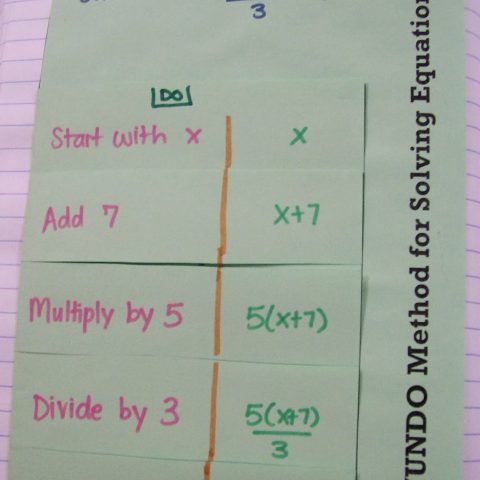 3
DO
Start with x | x
Add 7 | x+7
Multiply by 5 | 5(x+7)
Divide by 3 | 5(x+7)
3
UNDO Method for Solving Equation